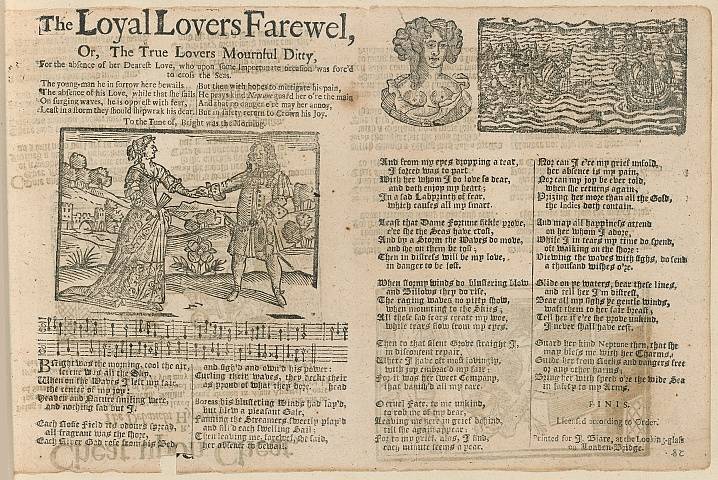 The Loyal Lovers Farewel,
Or, The True Lovers Mournful Ditty,
For the absence of her Dearest Love, who upon some Importunate occasion was forc'd
to cross the Seas.
The young-man he in sorrow here bewails
The absence of his Love, while that she sails
On surging waves, he is opprest with fear,
Least in a storm they should shipwrack his dear.
But then with hopes to mittigate his pain,
He prays kind Neptune guard her o're the main
And that no danger e're may her annoy,
But in safety return to Crown his Joy.
To the Tune of, Bright was the Morning.
Bright was the morning, cool the air,
serene was all the Sky,
When on the Waves I left my fair,
the center of my joy;
Heaven and Nature smiling were,
and nothing sad but I.
Each Rosie Field its odours spread,
all fragrant was the shore,
Each River God rose from his Bed,
and sigh'd and own'd his power:
Curling their waves, they deckt their
as proud of what they bore. head
Boreas his blustering Winds had lay'd,
but blew a pleasant Gale,
Fanning the Streamers sweetly play'd
and fill'd each swelling Sail;
Then leaving me, farewel, she said,
her absence to bewail
And from my eyes dropping a tear,
I forced was to part
With her whom I do love so dear,
and doth enjoy my heart;
In a sad Labyrinth of fear,
which causes all my smart.
Least that Dame Fortune fickle prove,
e're she the Seas have crost,
And by a Storm the Waves do move,
and she on them be tost;
Then in distress will be my love,
in danger to be lost.
When stormy winds do blustering blow
and Billows they do rise,
The raging waves no pitty show,
when mounting to the Skies;
All these sad fears create my woe,
while tears flow from my eyes.
Then to that silent Grove straight I,
in discontent repair,
Where I have oft most lovingly,
with joy embrac'd my fair;
For it was her sweet Company,
that banish'd all my care.
O cruel Fate, to me unkind,
to rob me of my dear,
Leaving me here in grief behind,
till she again appear;
For to my grief, alas, I find,
each minute seems a year.
Nor can I e're my grief unfold,
her absence is my pain,
Nor can my joy be ever told,
when she returns again,
Prizing her more than all the Gold,
the Indies doth contain.
And may all happiness attend
on her whom I adore,
While I in tears my time do spend,
oft walking on the shore:
Viewing the waves with sighs, do send
a thousand wishes o're.
Glide on ye waters, bear these lines,
and tell her I'm distrest,
Bear all my sighs ye gentle winds,
waft them to her fair breast;
Tell her if e're she prove unkind,
I never shall have rest.
Guard her kind Neptune then, that she
may bless me with her Charms,
Guide her from Rocks and dangers free
or any other harms;
Bring her with speed o're the wide Sea
in safety to my Arms.
FINIS.
Licens'd according to Order.
Printed for J. Blare, at the Looking-glass
on London-Bridge.